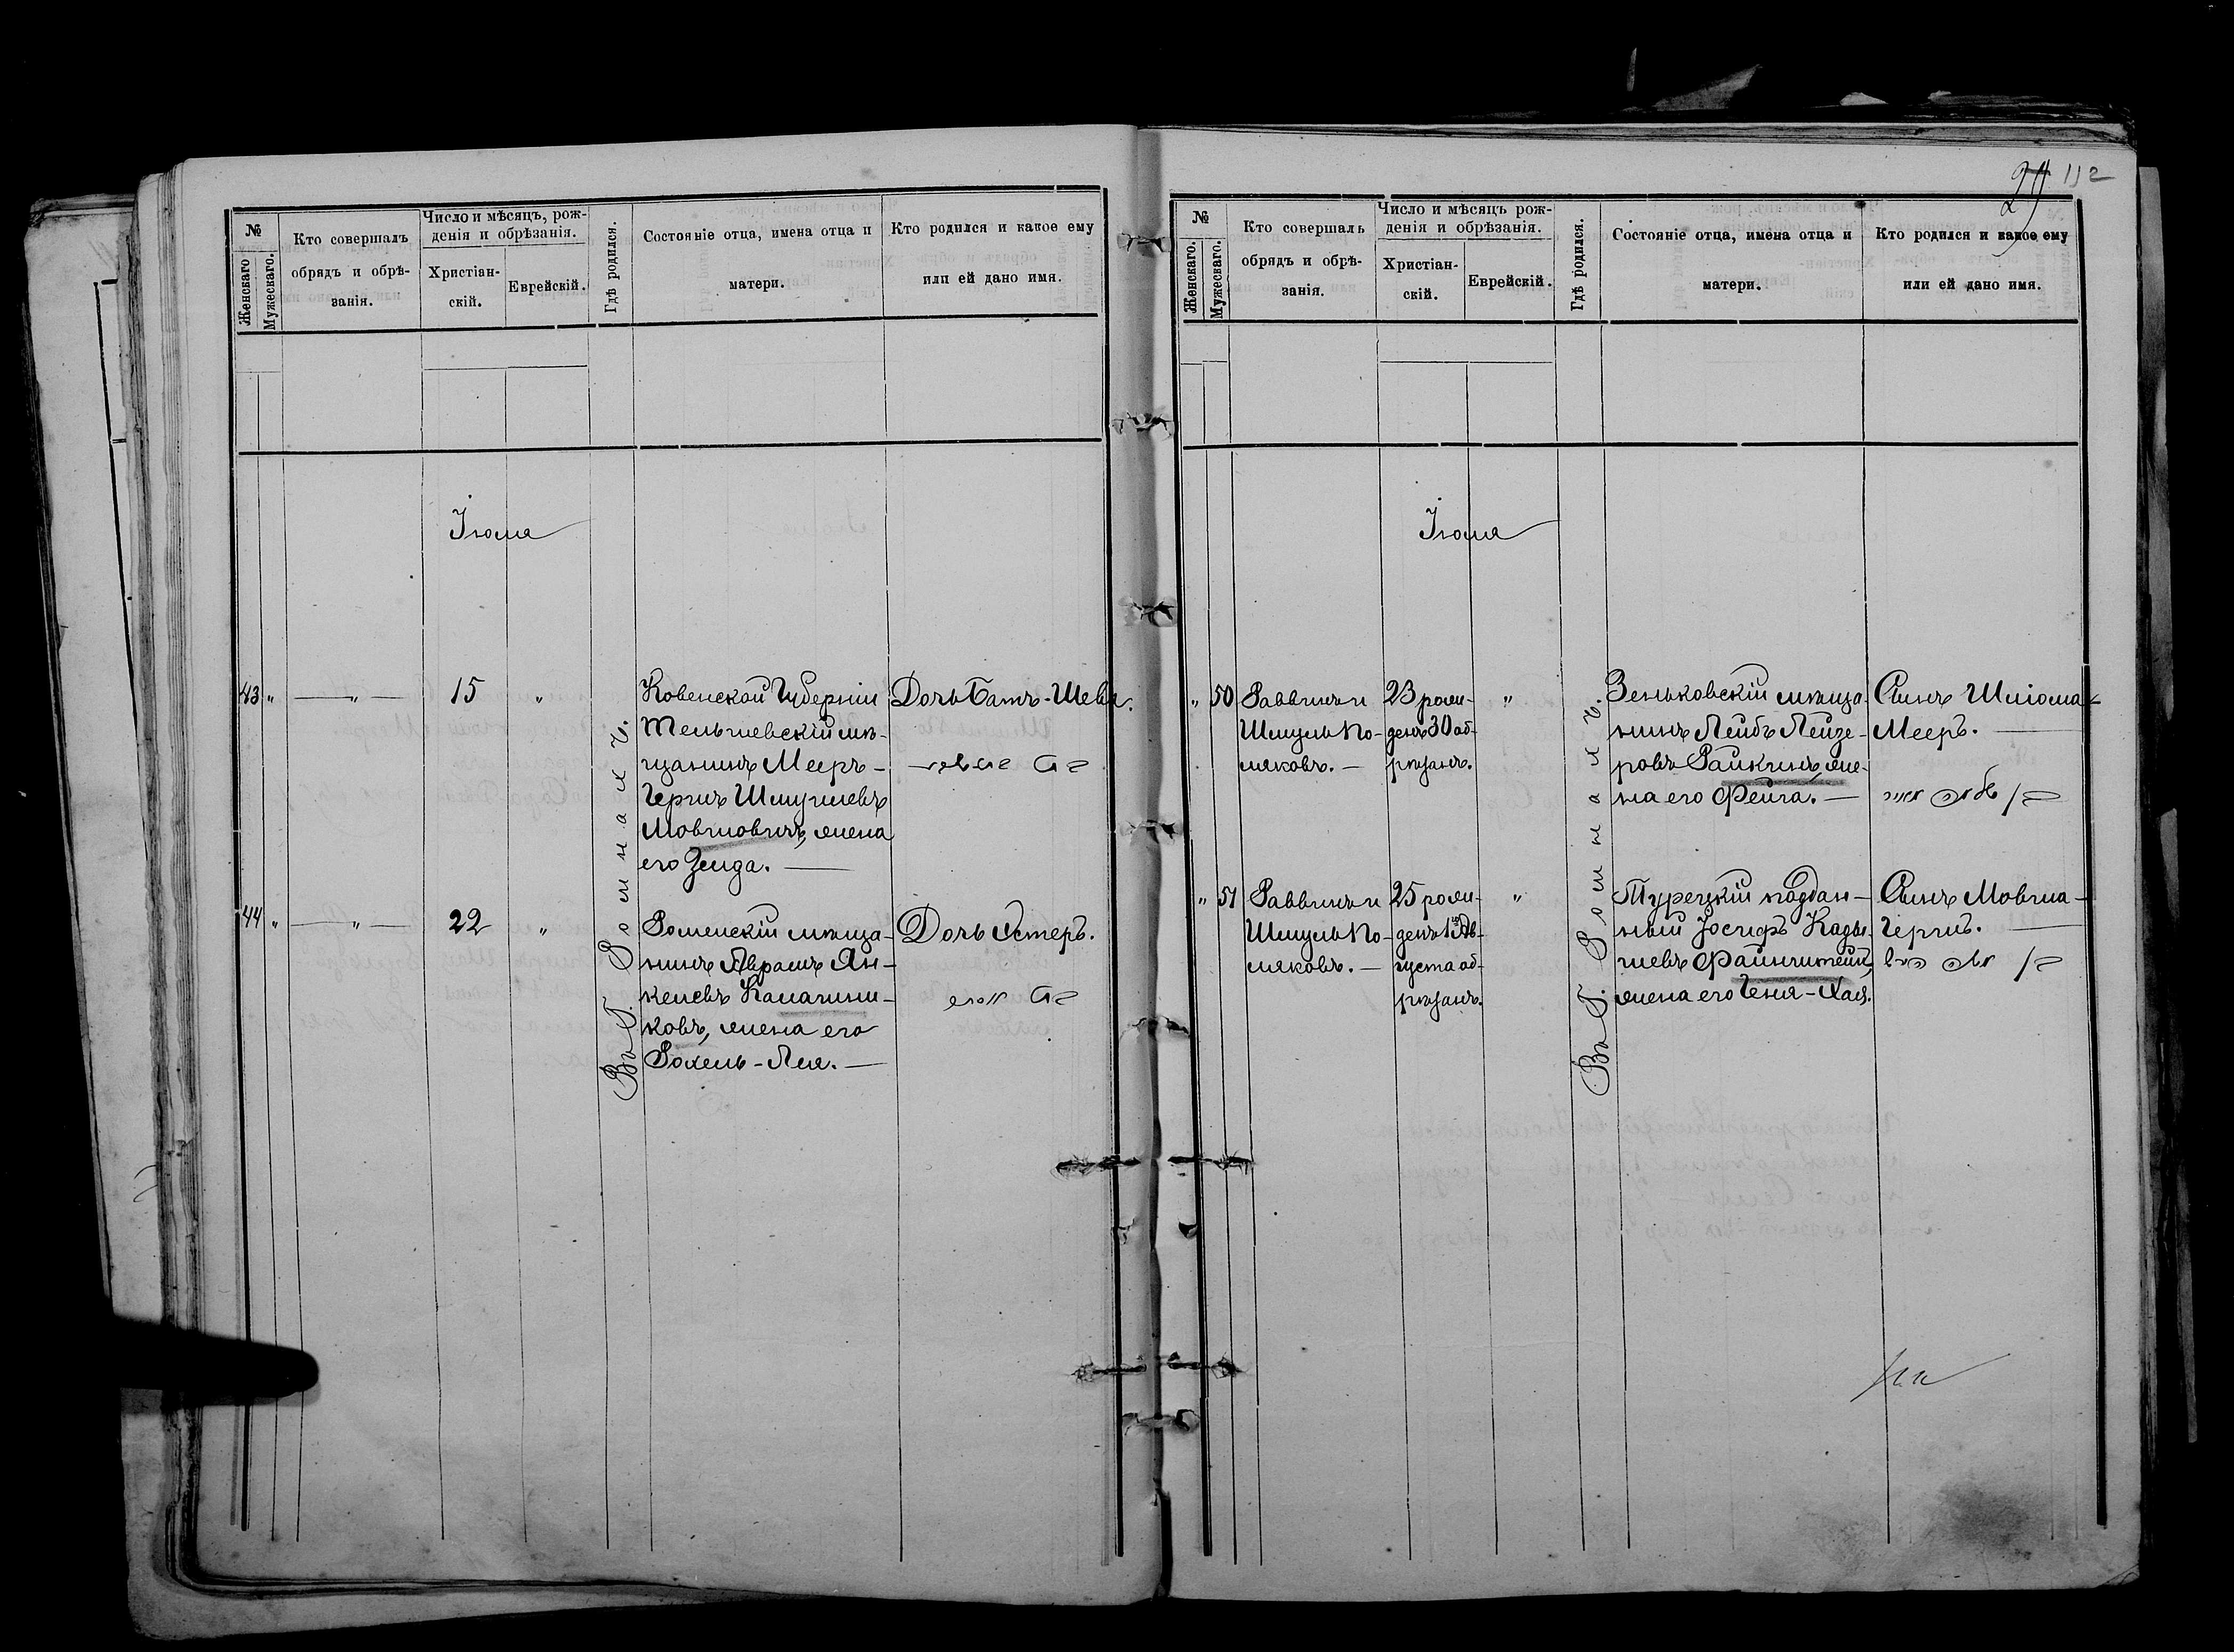 29 112
№
Женскаго
Мужескаго.
Кто совершалъ
обрядъ и обрѣ-
занія.
Число и мѣсяцъ, рож-
денія и обрѣзанія.
Христіан-
скій.
Еврейскій.
Гдѣ родился.
Состояніе отца, имена отца и
матери.
Кто родился и какое ему
или ей дано имя.
Іюля
43 " — " — 15 "
Ковенской Губерніи
Тельшевскій мѣ-
щанинъ Мееръ-
Герцъ Шмуилевъ
Мовшовичъ, жена
его Зелда. —
Дочь Батъ-Шева.
בת
44 " — " — 22 "
Роменскій мѣща-
нинъ Абрамъ Ян-
келевъ Калашни-
ковъ, жена его
Рохель-Лея. —
Дочь Эстеръ.
בת אסתר
Въ Г. Ромнахъ.
№
Женскаго.
Мужескаго.
Кто совершалъ
обрядъ и обрѣ-
занія.
Число и мѣсяцъ рож-
денія и обрѣзанія.
Христіан-
скій.
Еврейскій.
Гдѣ родился.
Состояніе отца, имена отца и
матери.
Кто родился и какое ему
или ей дано имя.
Іюля
" 50
Раввинъ и
Шмуль По-
ляковъ. —
23 рож-
денъ 30 об-
рѣзанъ.
"
Зеньковскій мѣща-
нинъ Лейбъ Лейзе-
ровъ Райкинъ, же-
на его Фейга. —
Сынъ Шліома-
Мееръ. —
בן שלמה מאיר
" 51
Раввинъ и
Шмуль По-
ляковъ. —
25 рож-
денъ 1 Ав-
густа об-
рѣзанъ.
"
Турецкій поддан-
ный Іосифъ Кады-
шевъ Файнштейн,
жена его Геня-Хая.
Сынъ Мовша-
Герцъ. —
בן משה הירץ
Въ Г. Ромнахъ.